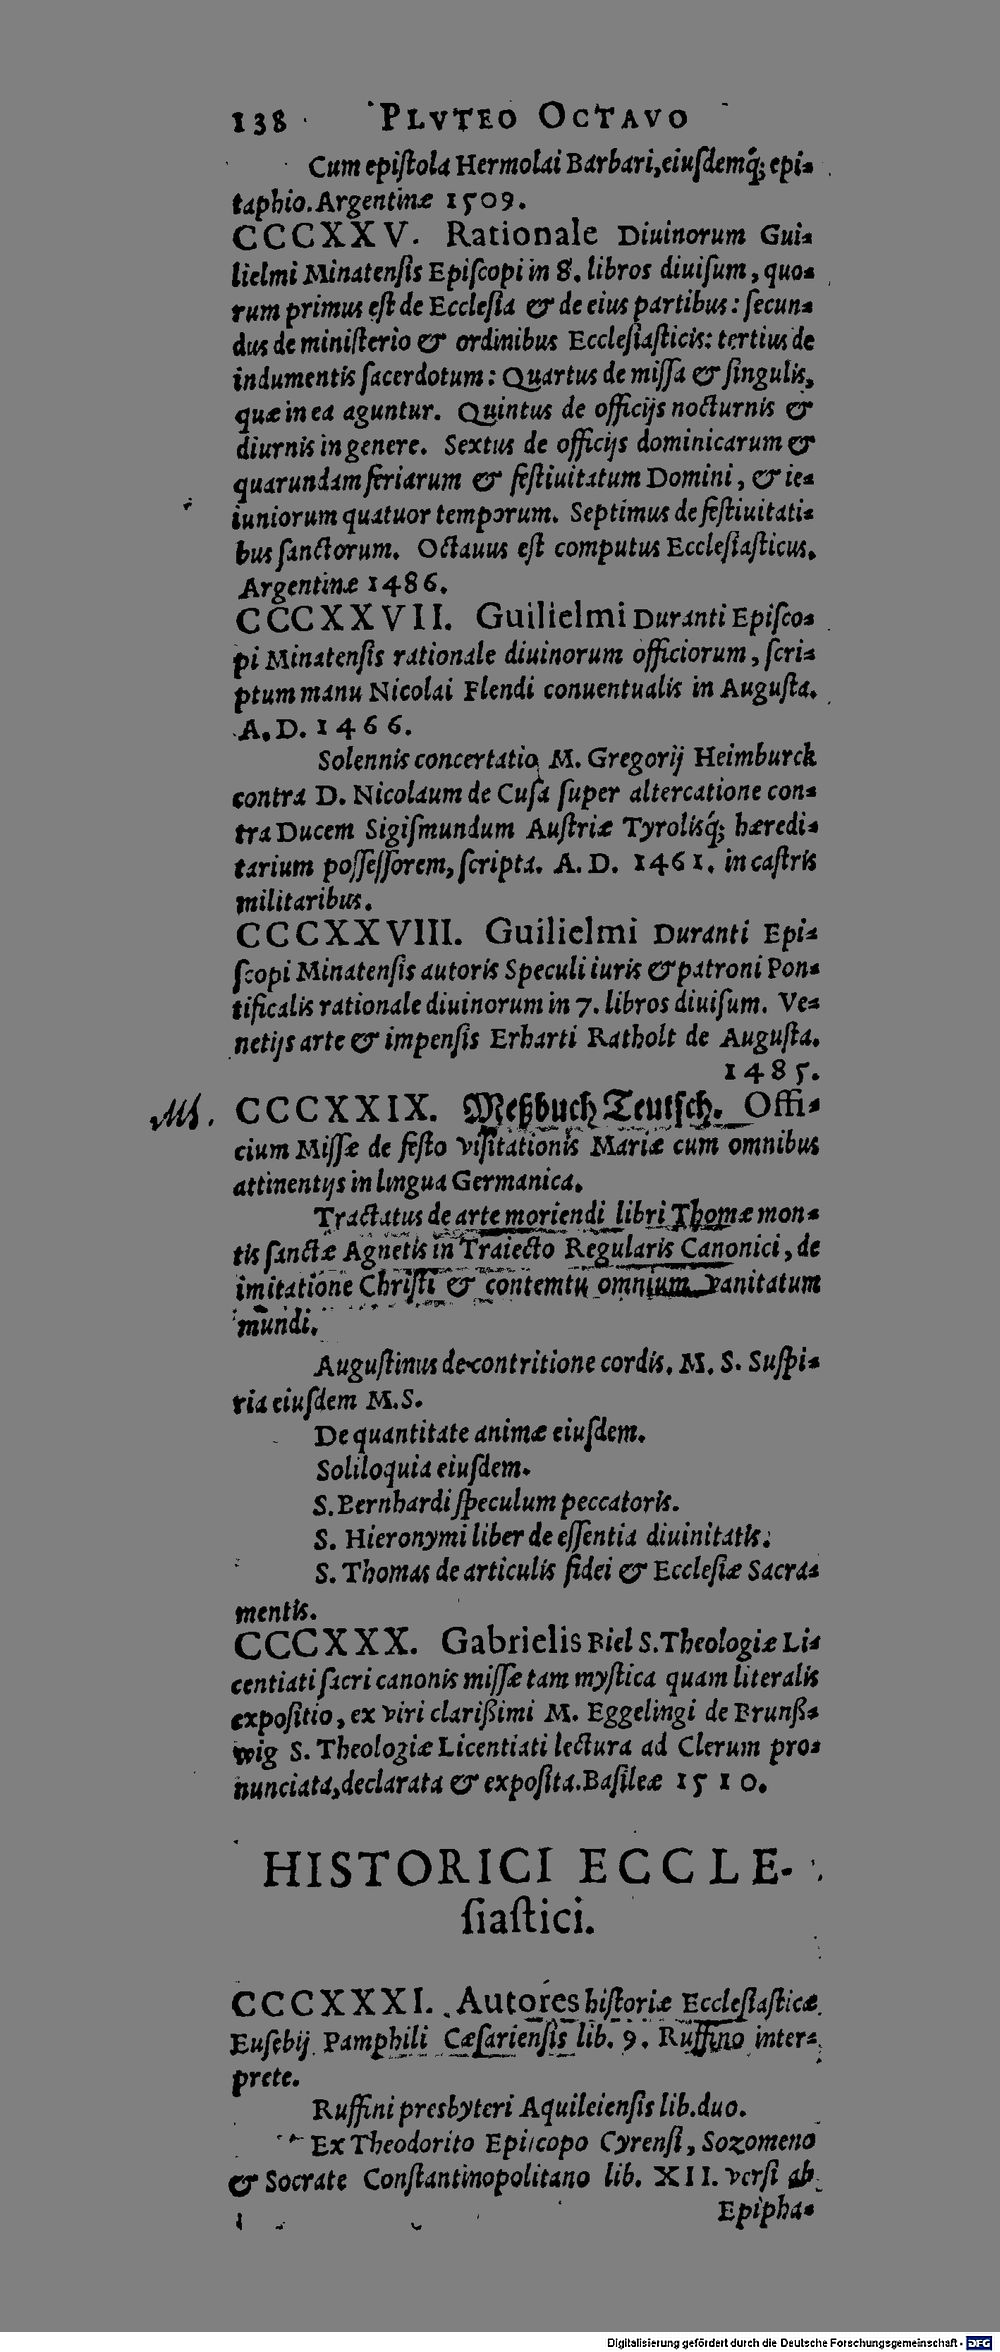 138 PLVTEO OCTAVO
Cum epiſtola Hermolai Barbari, eiuſdemq́; epi-
taphio. Argentinæ 1509.
CCCXXV. Rationale Diuinorum Gui-
lielmi Minatenſis Epiſcopi in 8. libros diuiſum, quo-
rum primus eſt de Eccleſia & de eius partibus: ſecun-
dus de miniſterio & ordinibus Eccleſiaſticis: tertius de
indumentis ſacerdotum: Quartus de miſſa & ſingulis,
quæ in ea aguntur. Quintus de officijs nocturnis &
diurnis in genere. Sextus de officijs dominicarum &
quarundam feriarum & feſtiuitatum Domini, & ie-
iuniorum quatuor temporum. Septimus de feſtiuitati-
bus ſanctorum. Octauus eſt computus Eccleſiaſticus.
Argentinæ 1486.
CCCXXVII. Guilielmi Duranti Epiſco-
pi Minatenſis rationale diuinorum officiorum, ſcri-
ptum manu Nicolai Flendi conuentualis in Auguſta.
A. D. 1466.
Solennis concertatio M. Gregorij Heimburck
contra D. Nicolaum de Cuſa ſuper altercatione con-
tra Ducem Sigiſmundum Auſtriæ Tyrolisq́; hæredi-
tarium poſſeſſorem, ſcripta. A. D. 1461. in caſtris
militaribus.
CCCXXVIII. Guilielmi Duranti Epi-
ſcopi Minatenſis autoris Speculi iuris & patroni Pon-
tificalis rationale diuinorum in 7. libros diuiſum. Ve-
netijs arte & impenſis Erharti Ratholt de Auguſta.
1485.
MS. CCCXXIX. Meßbuch Teutſch. Offi-
cium Miſſæ de feſto viſitationis Mariæ cum omnibus
attinentijs in lingua Germanica.
Tractatus de arte moriendi libri Thomæ mon-
tis ſanctæ Agnetis in Traiecto Regularis Canonici, de
imitatione Chriſti & contemtu omnium vanitatum
mundi.
Auguſtinus de contritione cordis. M. S. Suſpi-
ria eiuſdem M.S.
De quantitate animæ eiuſdem.
Soliloquia eiuſdem.
S. Bernhardi ſpeculum peccatoris.
S. Hieronymi liber de eſſentia diuinitatis.
S. Thomas de articulis fidei & Eccleſiæ Sacra-
mentis.
CCCXXX. Gabrielis Biel S. Theologiæ Li-
centiati ſacri canonis miſſæ tam myſtica quam literalis
expoſitio, ex viri clarißimi M. Eggelingi de Brunß-
wig S. Theologiæ Licentiati lectura ad Clerum pro-
nunciata, declarata & expoſita. Baſileæ 1510.
HISTORICI ECCLE-
ſiaſtici.
CCCXXXI. Autores hiſtoriæ Eccleſiaſticæ
Euſebij Pamphili Cæſarienſis lib. 9. Ruffino inter-
prete.
Ruffini presbyteri Aquileienſis lib. duo.
Ex Theodorito Epiſcopo Cyrenſi, Sozomeno
& Socrate Conſtantinopolitano lib. XII. verſi ab
Epipha-
Digitalisierung gefördert durch die Deutsche Forschungsgemeinschaft - DFG